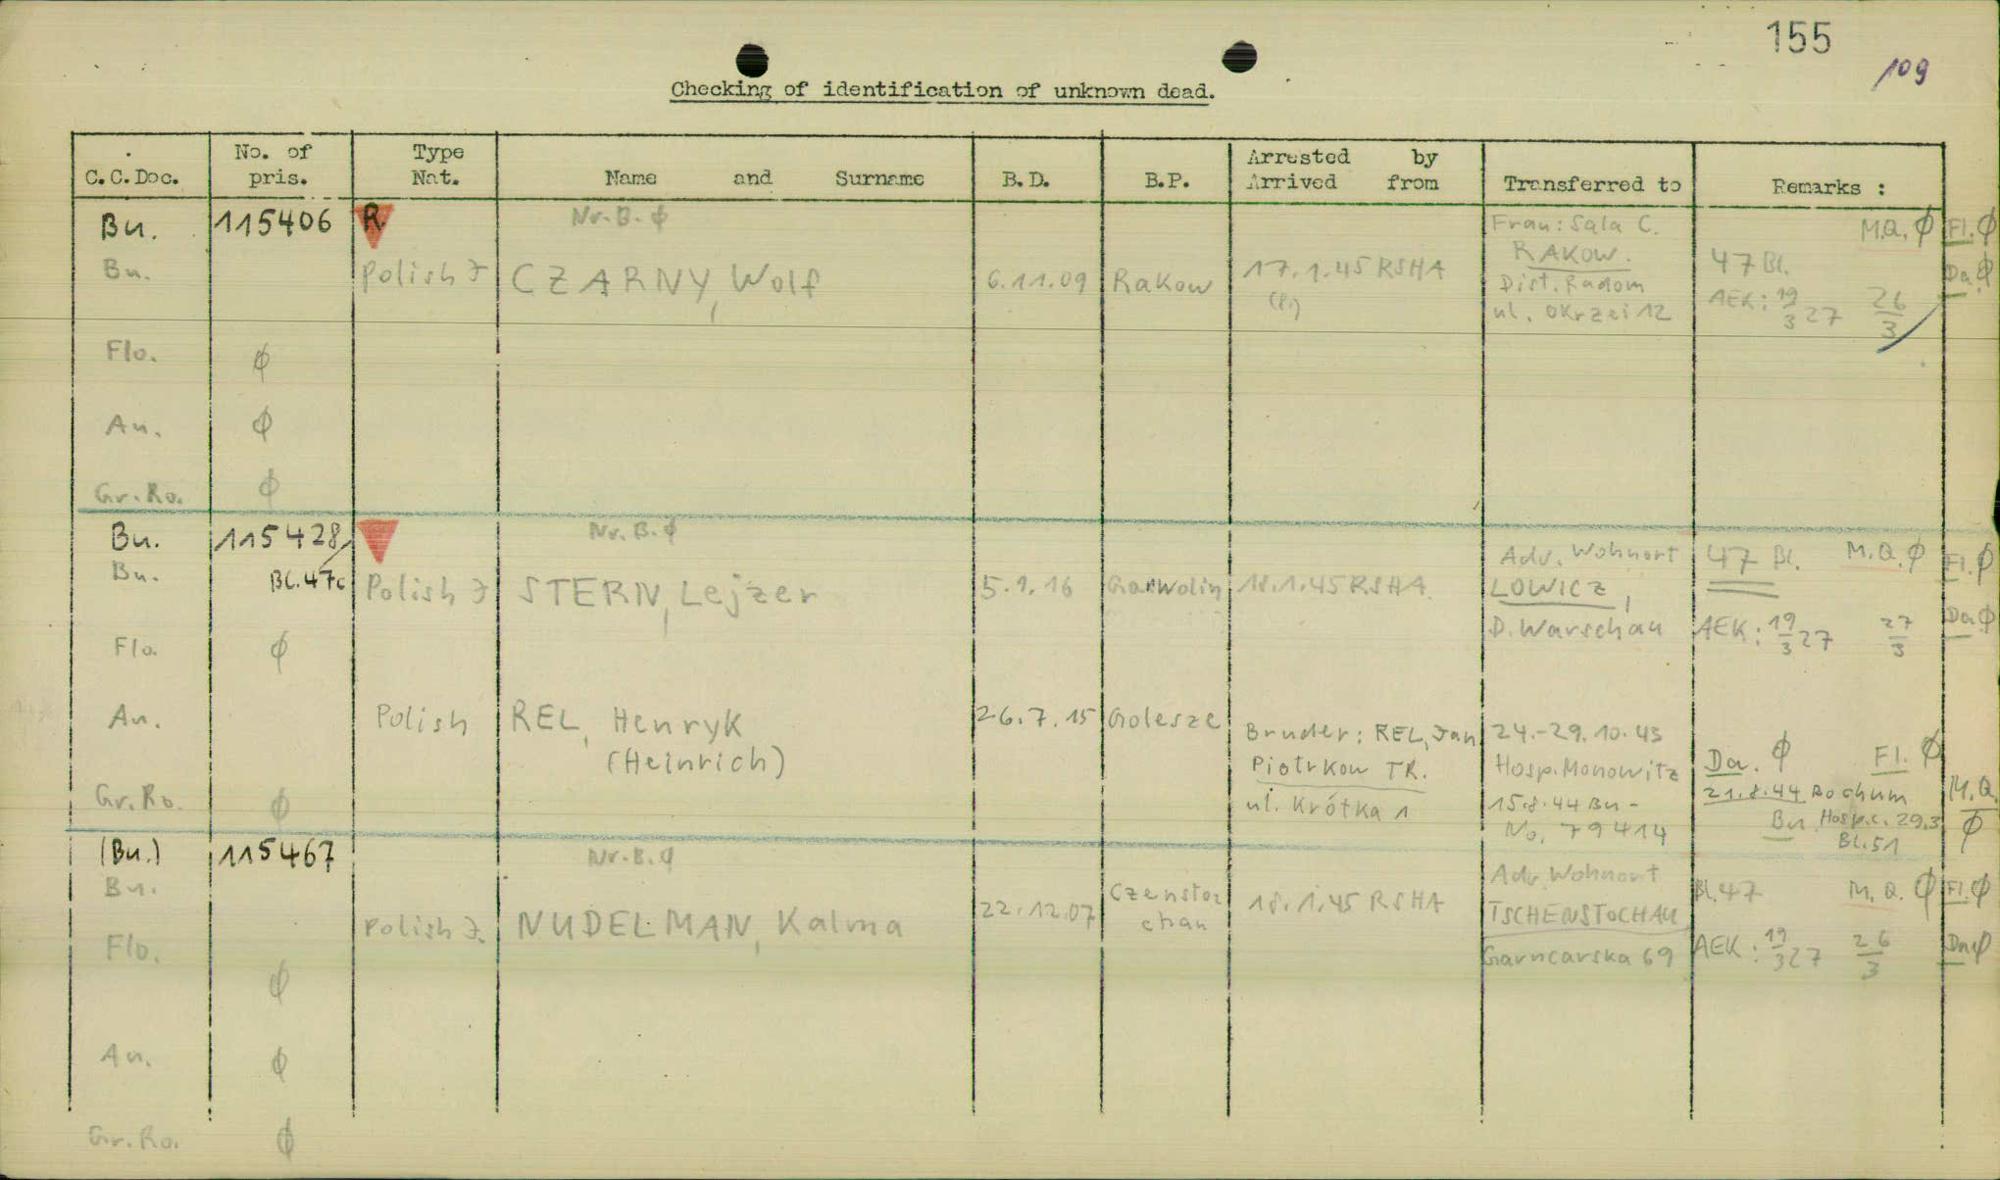 155
109
Checking of identification of unknown dead.
C.C.Doc. No. of pris. Type Nat. Name and Surname B.D. B.P. Arrested by Arrived from Transferred to Remarks :
Bu. 115406 R Nr.B. ϕ Frau: Sala C. M.Q. ϕ Fl. ϕ
Bu. Polish J CZARNY, Wolf 6.11.09 Rakow 17.1.45 RSHA RAKOW. 47 Bl. Da. ϕ
Dist. Radom
ul. Okrzei 12 AEK: 19/3 27 26/3
Flo. ϕ
An. ϕ
Gr.Ro. ϕ
Bu. 115428 Nr.B. ϕ Adr. Wohnort 47 Bl. M.Q. ϕ Fl. ϕ
Bu. Bl.47c Polish J STERN, Lejzer 5.9.16 Garwolin 18.1.45 RSHA LOWICZ,
D. Warschau AEK: 19/3 27 27/3 Da ϕ
Flo. ϕ
An. Polish REL, Henryk 26.7.15 Golesze Bruder: REL, Jan 24.-29.10.43
(Heinrich) Piotrkow TR. Hosp. Monowitz Da. ϕ Fl. ϕ
Gr.Ro. ϕ ul. Krótka 1 15.8.44 Bu- 21.8.44 Bochum M.Q.
No. 79414 Bu Hosp.c. 29.3 ϕ
Bl.51
(Bu.) 115467 Nr.B. ϕ Adr. Wohnort
Bu. Polish J. NUDELMAN, Kalma 22.12.07 Czenstochau 18.1.45 RSHA TSCHENSTOCHAU Bl.47 M.Q. ϕ Fl. ϕ
Flo. ϕ Garncarska 69 AEK: 19/3 27 26/3 Da ϕ
An. ϕ
Gr.Ro. ϕ